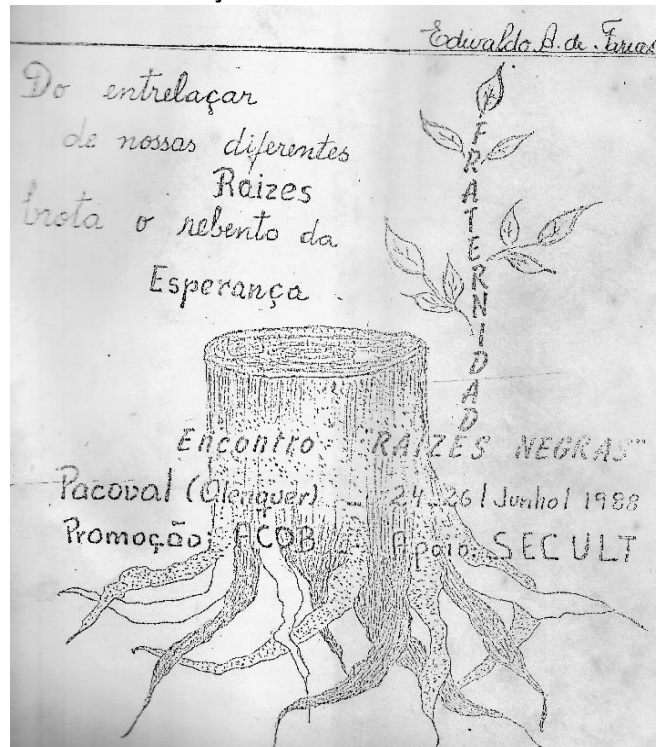 Edivaldo A. de Farias
Do entrelaçar
de nossas diferentes
Raizes
brota o rebento da
Esperança
FRATERNIDAD
Encontro "RAIZES NEGRAS"
Pacoval (Alenquer) _ 24_26 / Junho / 1988
Promoção: ACOB _ Apoio: SECULT